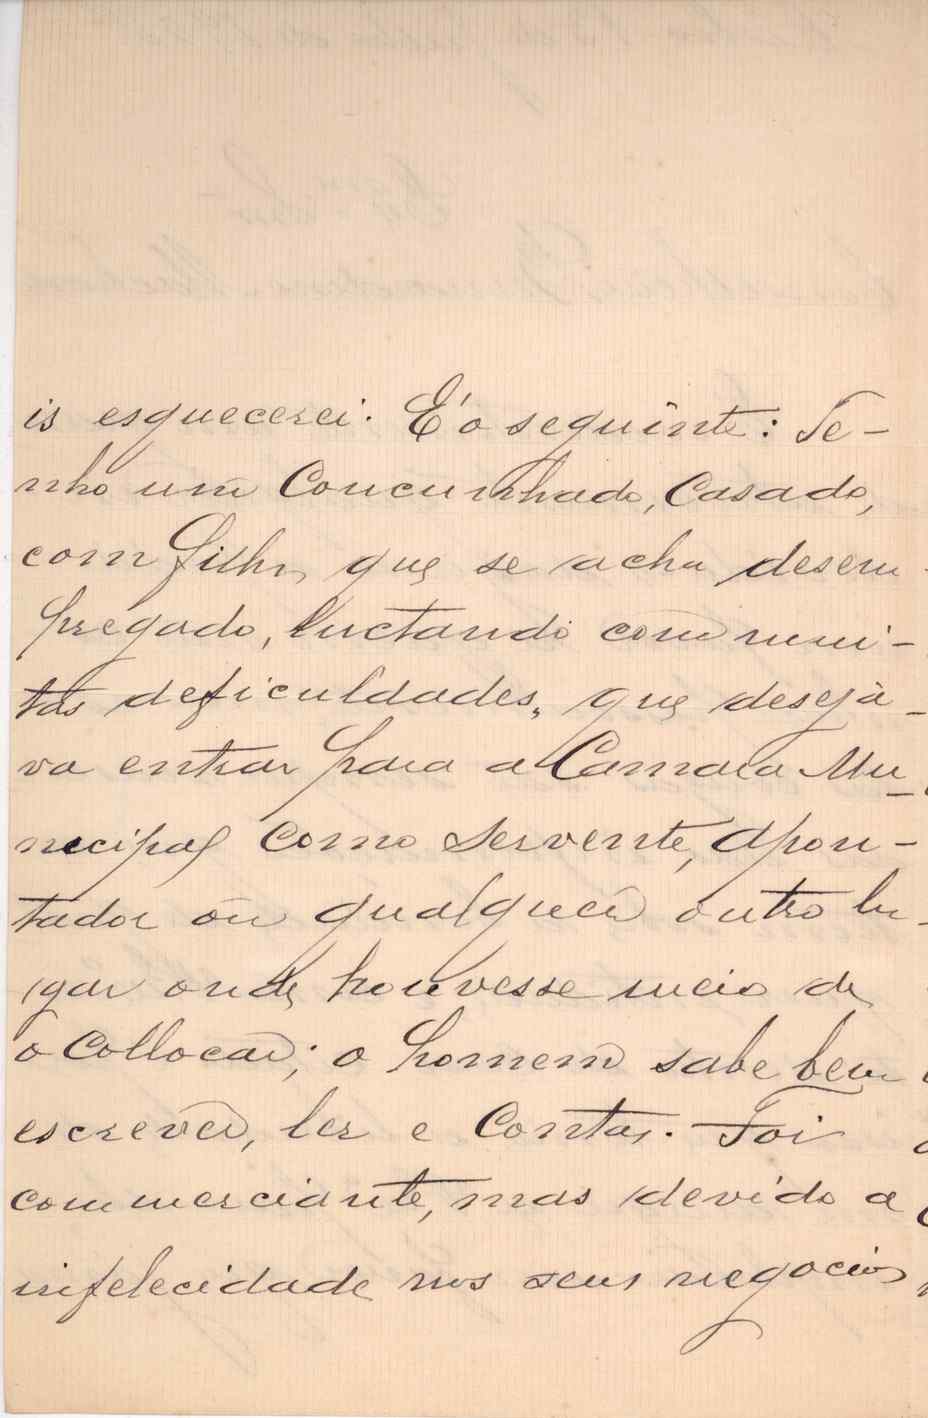 is esquecerei. É o seguinte: Te-
nho um Concunhado, Casado,
com filhos, que se acha desem-
pregado, luctando com mui-
tas deficuldades, que deseja-
va entrar para a Camara Mu-
necipal como servente, Apon-
tador ou qualquer outro lu-
gar onde houvesse meio de
o collocar; o homem sabe bem
escrever, ler e Contas. Foi
commerciante, mas devido a
infelecidade nos seus negocios